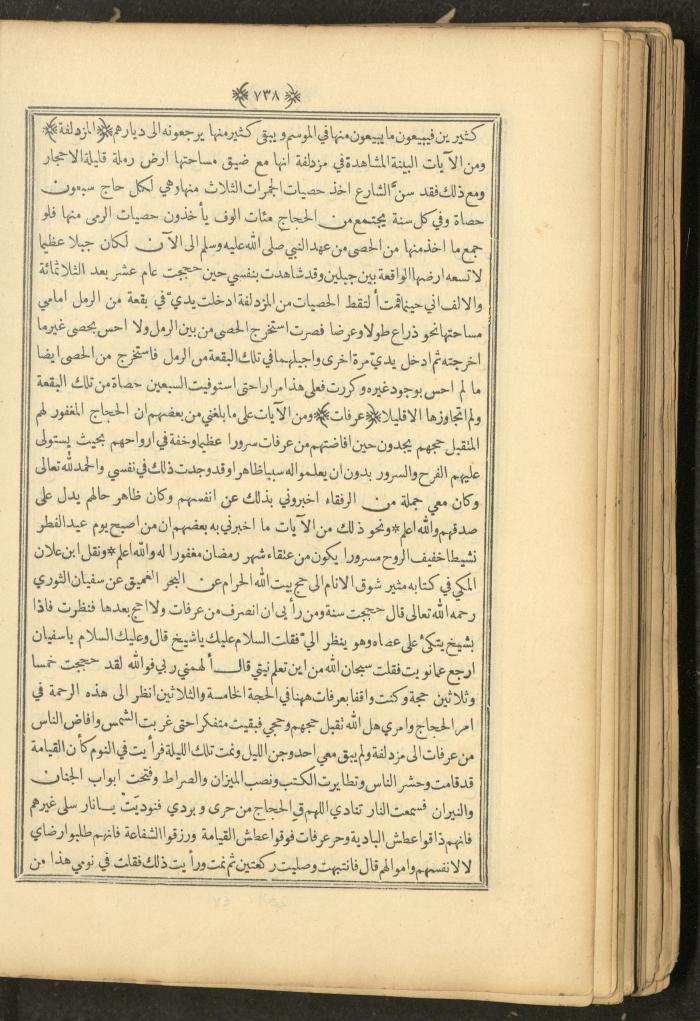 ﴿٧٣٨﴾
كثيرين فيبيعون ما يبيعون منها في الموسم ويبقى كثير منها يرجعونه الى ديارهم ﴿المزدلفة﴾
ومن الآيات البينة المشاهدة في مزدلفة انها مع ضيق مساحتها ارض رملة قليلة الاحجار
ومع ذلك فقد سنَّ الشارع اخذ حصيات الجمرات الثلاث منها وهي لكل حاج سبعون
حصاة وفي كل سنة يجتمع من الحجاج مئات الوف يأخذون حصيات الرمى منها فلو
جمع ما اخذ منها من الحصى من عهد النبي صلى الله عليه وسلم الى الآن لكان جبلا عظيما
لا تسعه ارضها الواقعة بين جبلين وقد شاهدت بنفسي حين حججت عام عشر بعد الثلاثمائة
والالف اني حينما قمت ألتقط الحصيات من المزدلفة ادخلت يديّ في بقعة من الرمل امامي
مساحتها نحو ذراع طولا وعرضا فصرت استخرج الحصى من بين الرمل ولا احس بحصى غير ما
اخرجته ثم ادخل يديّ مرة اخرى واجيلهما في تلك البقعة من الرمل فاستخرج من الحصى ايضا
ما لم احس بوجود غيره وكررت فعلى هذا مرارا حتى استوفيت السبعين حصاة من تلك البقعة
ولم اتجاوزها الا قليلا ﴿عرفات﴾ ومن الآيات على ما بلغني من بعضهم ان الحجاج المغفور لهم
المتقبل حجهم يجدون حين افاضتهم من عرفات سرورا عظيما وخفة في ارواحهم بحيث يستولى
عليهم الفرح والسرور بدون ان يعلموا له سببا ظاهرا وقد وجدت ذلك في نفسي والحمد لله تعالى
وكان معي جملة من الرفقاء اخبروني بذلك عن انفسهم وكان ظاهر حالهم يدل على
صدقهم والله اعلم * ونحو ذلك من الآيات ما اخبرني به بعضهم ان من اصبح يوم عيد الفطر
نشيطا خفيف الروح مسرورا يكون من عتقاء شهر رمضان مغفورا له والله اعلم * ونقل ابن علان
المكي في كتابه مثير شوق الانام الى حج بيت الله الحرام عن البحر العميق عن سفيان الثوري
رحمه الله تعالى قال حججت سنة ومن رأيى ان انصرف من عرفات ولا احج بعدها فنظرت فاذا
بشيخ يتكئ على عصاه وهو ينظر اليّ فقلت السلام عليك يا شيخ قال وعليك السلام يا سفيان
ارجع عما نويت فقلت سبحان الله من اين تعلم نيتي قال ألهمني ربي فوالله لقد حججت خمسا
وثلاثين حجة وكنت واقفا بعرفات ههنا في الحجة الخامسة والثلاثين انظر الى هذه الرحمة في
امر الحجاج وامري هل الله تقبل حجهم وحجي فبقيت متفكرا حتى غربت الشمس وافاض الناس
من عرفات الى مزدلفة ولم يبق معي احد وجن الليل ونمت تلك الليلة فرأيت في النوم كأن القيامة
قد قامت وحشر الناس وتطايرت الكتب ونصب الميزان والصراط وفتحت ابواب الجنان
والنيران فسمعت النار تنادي اللهم ق الحجاج من حرى وبردي فنوديت يا نار سلي غيرهم
فانهم ذاقوا عطش البادية وحر عرفات فوقوا عطش القيامة ورزقوا الشفاعة فانهم طلبوا رضاي
لا لانفسهم واموالهم قال فانتبهت وصليت ركعتين ثم نمت ورأيت ذلك فقلت في نومي هذا من